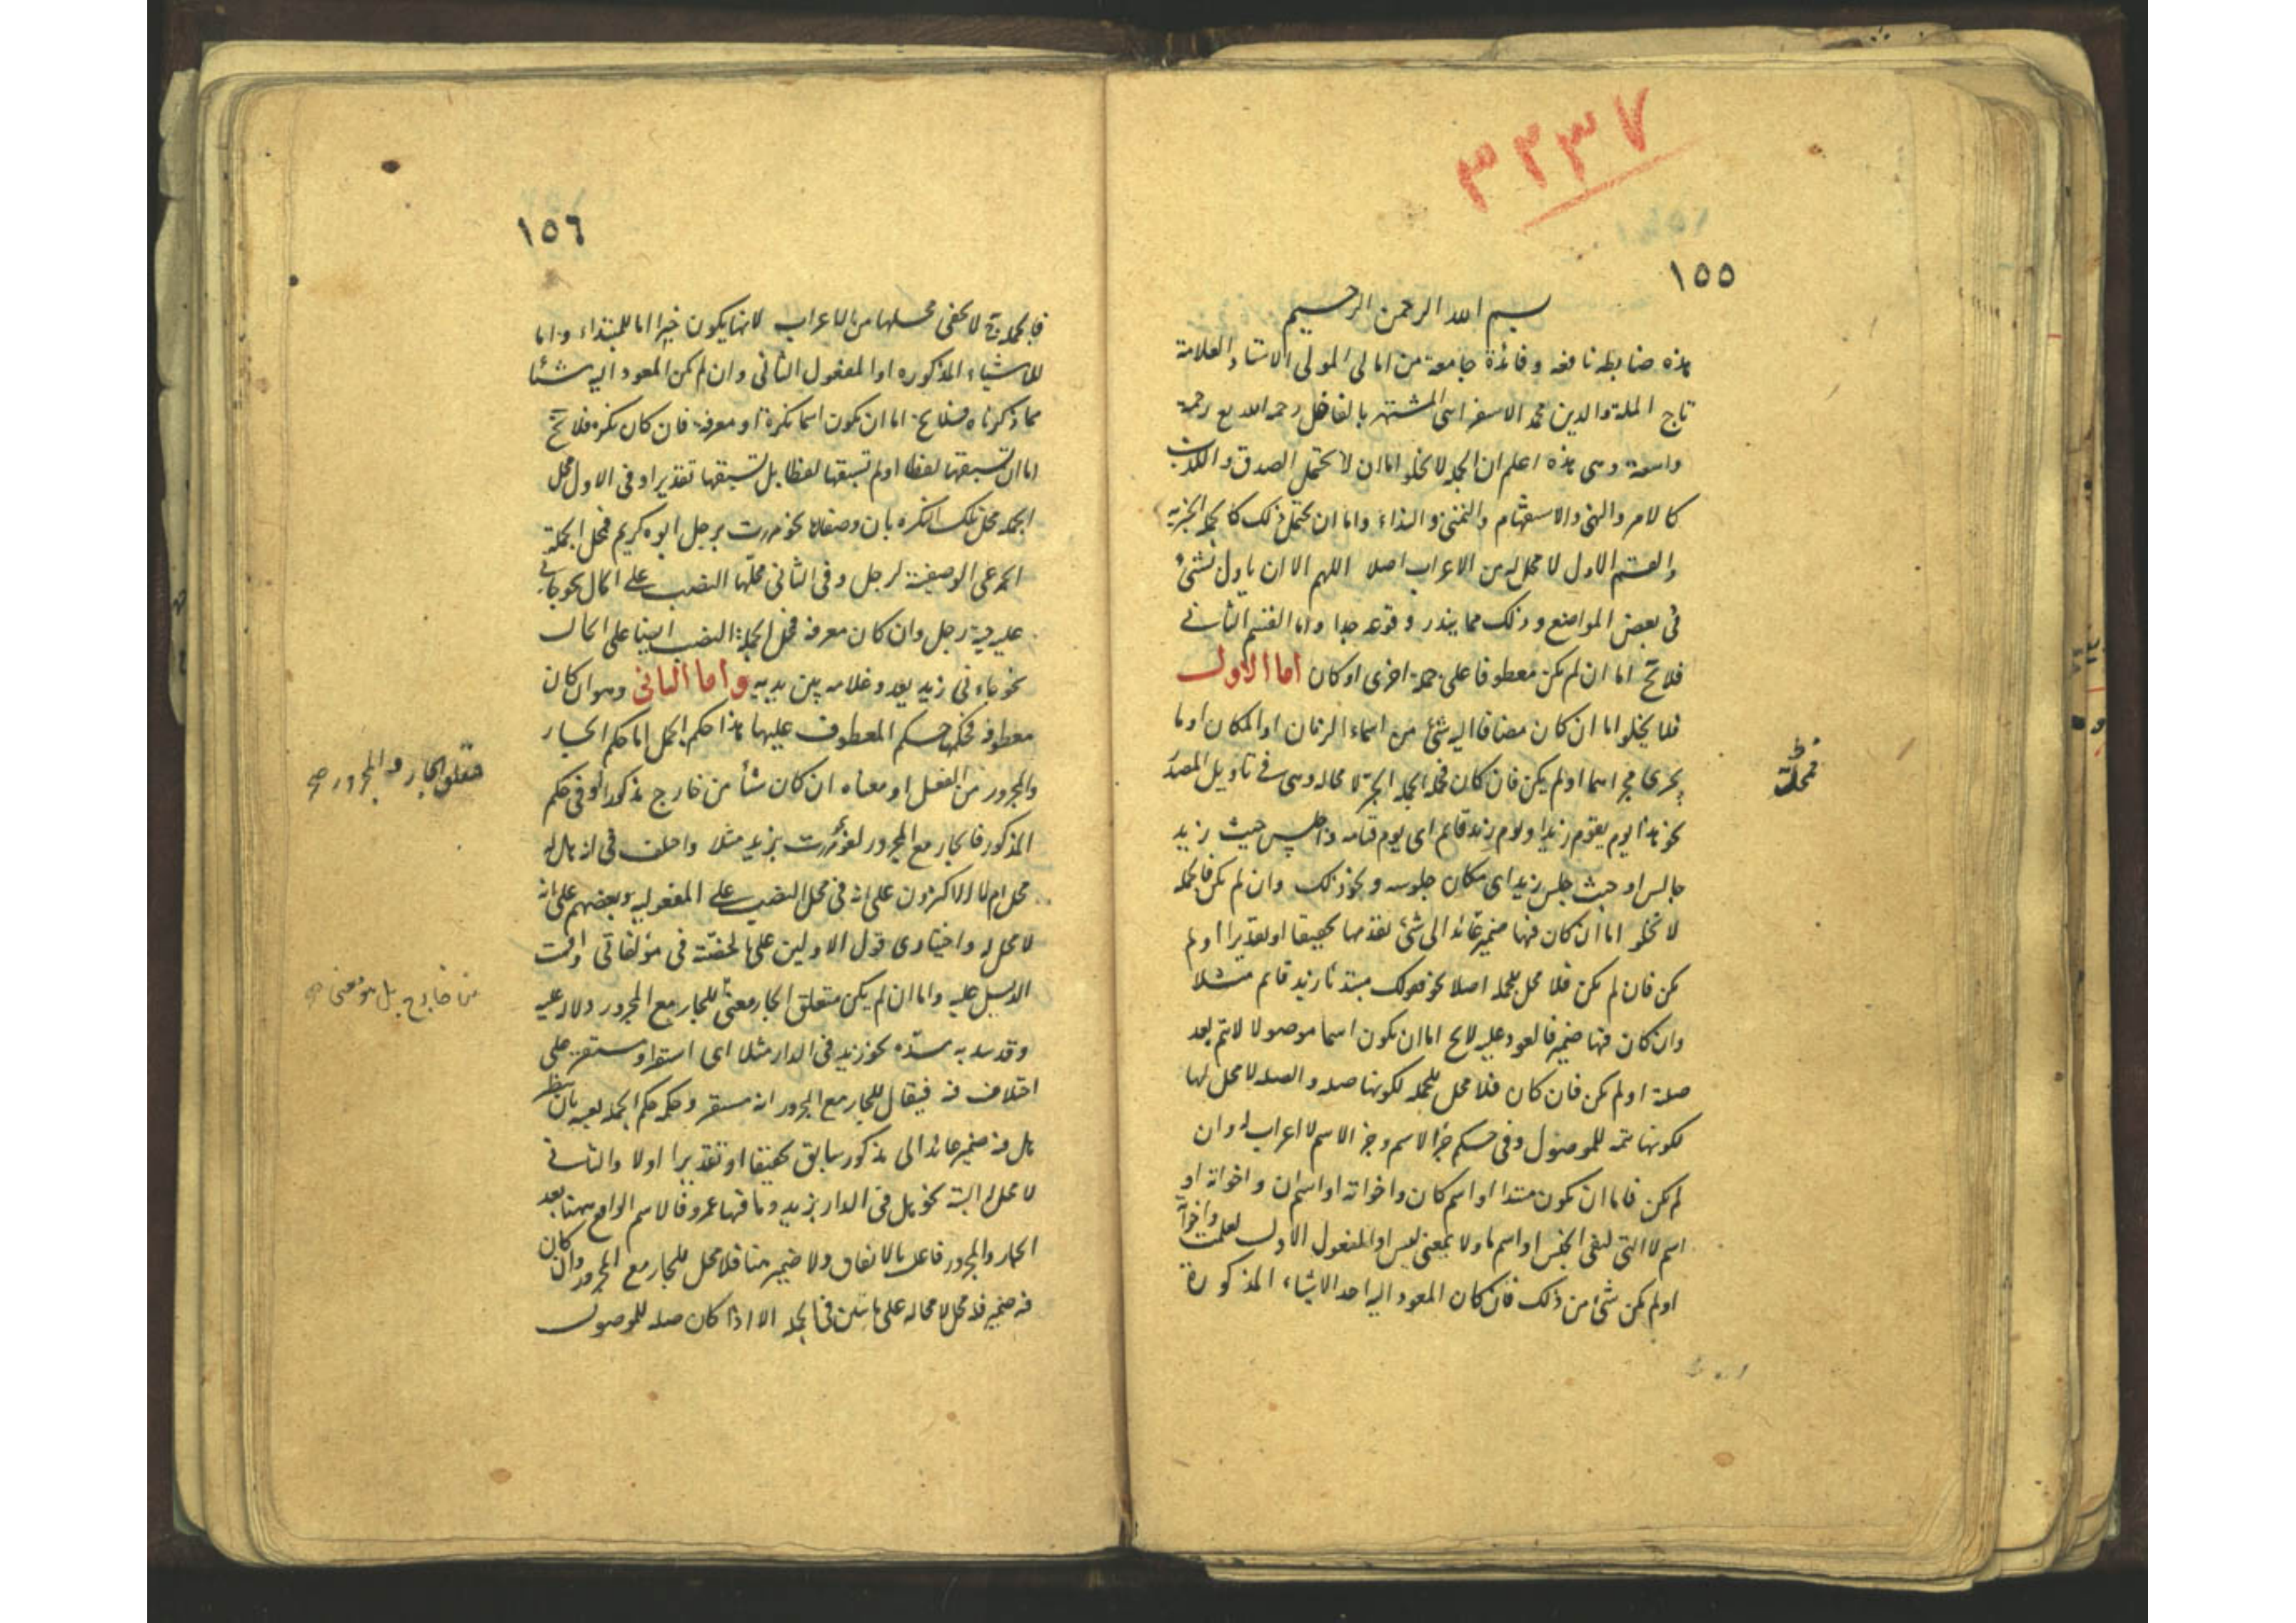 ٣٢٣٧
١٥٥
بسم الله الرحمن الرحيم
هذه ضابطه نافعه و فائدة جامعة من امالى المولى الاستاد العلامة
تاج الملة والدين محمد الاسفراسى المشتهر بالفاضل رحمه الله رحمة
واسعة وهى هذه اعلم ان الجمله لا يخلو اما ان لا يحتمل الصدق والكذب
كالامر والنهى والاستفهام والتمنى والنداء واما ان يحتمل ذلك كالجمله الخبريه
والقسم الاول لا محل له من الاعراب اصلا اللهم الا ان ياول بشئ
فى بعض المواضع وذلك مما يندر وقوعه جدا واما القسم الثانى
فلا يخ اما ان لم يكن معطوفا على جملة اخرى او كان اما الاول
فلا يخلو اما ان كان مضافا اليه شئ من اسماء الزمان او المكان او ما
يجرى مجراهما او لم يكن فان كان فمحل الجملة الجر لا محاله وهى فى تاويل المصدر
نحو هذا يوم يقوم زيد او يوم زيد قائم اى يوم قيامه واجلس حيث زيد
جالس او حيث جلس زيد اى مكان جلوسه ونحو ذلك وان لم يكن فالجمله
لا تخلو اما ان كان فيها ضمير عائد الى شئ تقدمها تحقيقا او تقديرا او لم
يكن فان لم يكن فلا محل للجمله اصلا نحو قولك مبتدئا زيد قائم مثلا
وان كان فيها ضمير فالمعود عليه لايخ اما ان يكون اسما موصولا لا يتم بعد
صلة او لم يكن فان كان فلا محل للجمله لكونها صله والصله لا محل لها
لكونها تتمه للموصول وفى حكم جزء الاسم وجزء الاسم لا اعراب له وان
لم يكن فاما ان يكون مبتدا او اسم كان واخواته او اسم ان واخواته او
اسم لا التى لنفى الجنس او اسم ما ولا بمعنى ليس او المفعول الاول لعلمت واخواته
او لم يكن شئ من ذلك فان كان المعود اليه احد الاشياء المذكورة
فمحلة
١٥٦
فالجمله ح لا يخفى محلها من الاعراب لانها يكون خبرا اما للمبتداء واما
للاشياء المذكوره او المفعول الثانى وان لم يكن المعود اليه شئا
مما ذكرناه فلا يخ اما ان يكون اسما نكرة او معرفة فان كان نكرة فلا يخ
اما ان تسبقها لفظا او لم تسبقها لفظا بل تسبقها تقديرا وفى الاول محل
الجمله محل تلك النكره بان وصفا لها نحو مررت برجل ابوه كريم فمحل الجملة
الجر على الوصفية لرجل وفى الثانى محلها النصب على الحال نحو جائنى
عليه جبة رجل وان كان معرفه فمحل الجملة النصب ايضا على الحال
نحو جاءنى زيد يعدو غلامه بين يديه واما الثانى وهو ان كان
معطوفه فحكمها حكم المعطوف عليها هذا حكم الجمل اما حكم الجار
والمجرور من الفعل او معناه ان كان شأ من خارج مذكورا او فى حكم
المذكور فالجار مع المجرور لغو نحو مررت بزيد مثلا واختلف فى انه هل له
محل ام لا الاكثرون على انه فى محل النصب على المفعوليه وبعضهم على انه
لا محل له واختيارى قول الاولين على ما حققته فى مؤلفاتى واقمت
الدليل عليه واما ان لم يكن متعلق الجار معنى للجار مع المجرور ودلالة عليه
وقد سد به مسده نحو زيد فى الدار مثلا اى استقر او مستقر على
اختلاف فيه فيقال للجار مع المجرور انه مستقر وحكمه حكم الجمله بعينه بان ينظر
هل فيه ضمير عائد الى مذكور سابق تحقيقا او تقديرا اولا والثانى
لا محل له البتة نحو هل فى الدار زيد وما فيها عمرو فالاسم الواقع ههنا بعد
الجار والمجرور فاعل بالاتفاق ولا ضمير هنا فلا محل للجار مع المجرور وان كان
فيه ضمير فله محل لا محاله على ما تبين فى الجمله الا اذا كان صله للموصول
متعلق الجار والمجرور صح
من خارج بل هو معنى صح